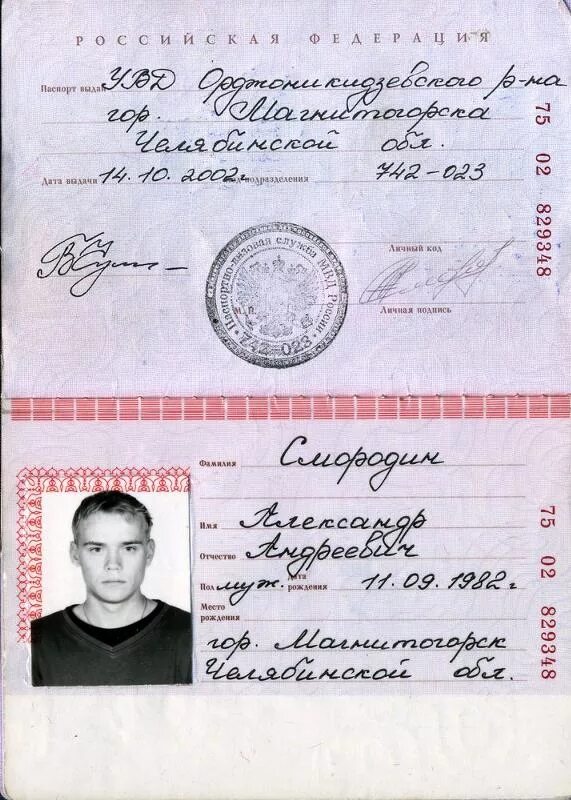 РОССИЙСКАЯ ФЕДЕРАЦИЯ
Паспорт выдан УВД Орджоникидзевского р-на
гор. Магнитогорска
Челябинской обл.
Дата выдачи 14.10.2002г. подразделения 742-023
75 02 829348
Личный код
М.П.
Личная подпись
Паспортно-визовая служба МВД России
742-023
Фамилия Смородин
Имя Александр
Отчество Андреевич
Пол муж. Дата рождения 11.09.1982г
Место рождения
гор. Магнитогорск
Челябинской обл.
75 02 829348